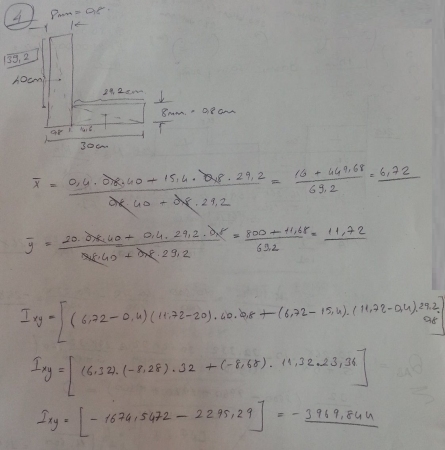 4
8mm = 0.8
39,2
40cm
29,2cm
8mm = 0.8cm
0.8
30cm
x̄ = 0,4 . 0,8 . 40 + 15,4 . 0,8 . 29,2 / 0,8 . 40 + 0,8 . 29,2 = 16 + 449,68 / 69,2 = 6,72
ȳ = 20 . 0,8 . 40 + 0,4 . 29,2 . 0,8 / 0,8 . 40 + 0,8 . 29,2 = 800 + 11,68 / 69,2 = 11,72
Ixy = [(6,72 - 0,4)(11,72-20) . 40 . 0,8 + (6,72 - 15,4) . (11,72 - 0,4) . 29,2 . 0,8]
Ixy = [(6,32) . (-8,28) . 32 + (-8,68) . 11,32 . 23,36]
Ixy = [-1674,5472 - 2295,29] = -3969,844